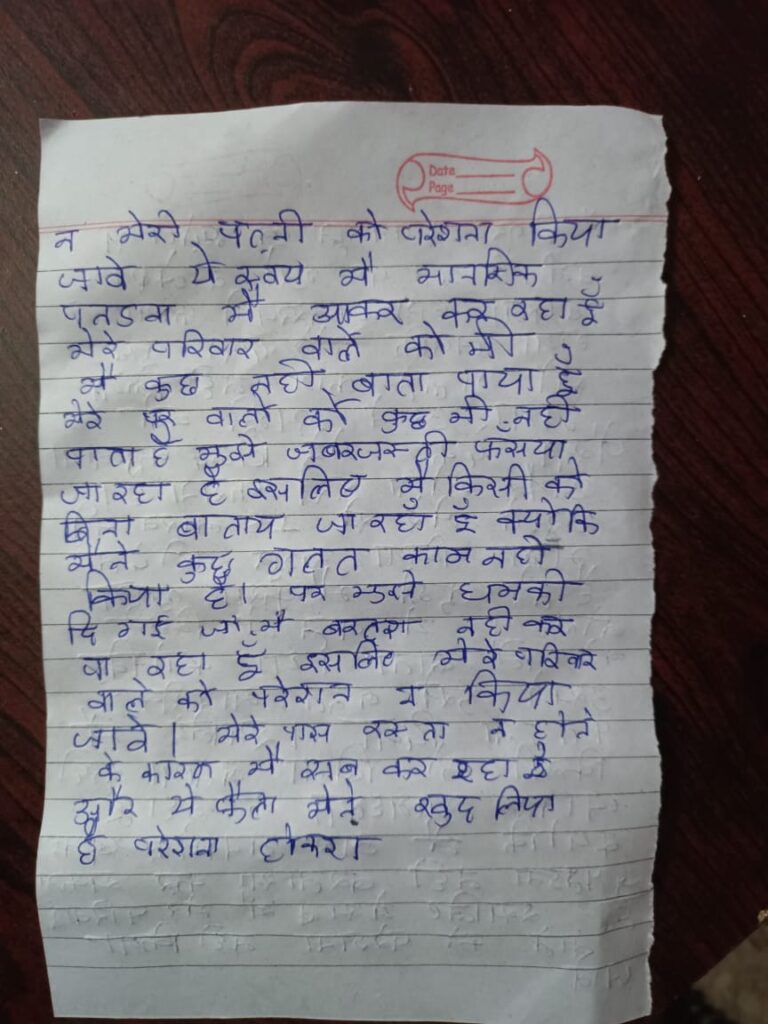 Date
Page
न मेरी पत्नी को परेशान किया
जावे ये स्वयं मै मानसिक
मै आकर कर रहा हूँ
मेरे परिवार वाले को भी
मै कुछ नही बाता पाया हूँ
मेरे घर वालो को कुछ भी नही
पाता है मुझे जबरजस्ती फसया
जा रहा है इसलिए मै किसी को
बिना बाताय जा रहा हूँ क्योकि
मैने कुछ गलत काम नही
किया है। पर मुझे धमकी
दि गई जो मै नही कर
पा रहा हूँ इसलिए मेरे परिवार
वाले को परेशान न किया
जावे। मेरे पास रस्ता न होने
के कारण मै सब कर रहा हूँ
और ये फैला मेने खुद लिया
है परेशान होकर।